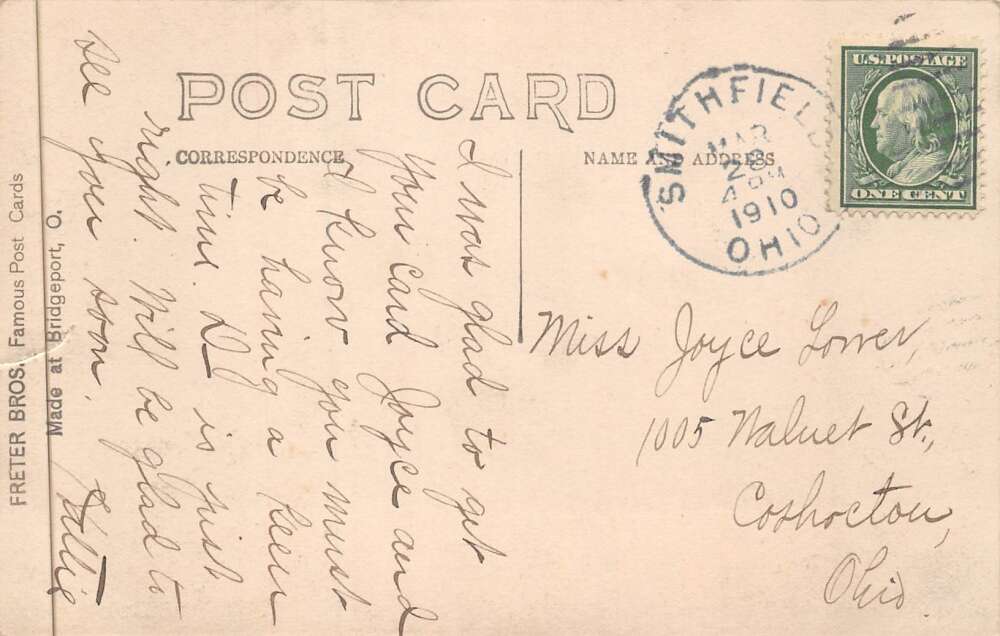 POST CARD
CORRESPONDENCE
NAME AND ADDRESS
SMITHFIELD
MAR
28
4 PM
1910
OHIO
U.S. POSTAGE
ONE CENT
I was glad to get
your card Joyce and
I know you must
be having a keen
time. D is just
right. Will be glad to
see you soon.
Hattie
Miss Joyce Lower,
1005 Walnut St.,
Coshocton,
Ohio.
FRETER BROS. Famous Post Cards
Made at Bridgeport, O.